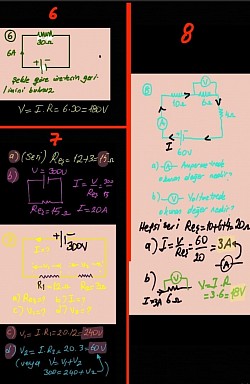 6
⑥
30Ω
6A
Şekle göre üretecin geri-
limini bulunuz
V = I.R = 6.30 = 180V
7
a) (Seri) Reş = 12+3 = 15Ω
b)
V = 300V
I = V/R = 300/15
Reş = 15Ω
I = 20A
300V
I = ?
R1 = 12Ω
R2 = 3Ω
a) Reş = ?
b) I = ?
c) V1 = I.R1 = 20.12 = 240V
d) V2 = I.R2 = 20.3 = 60V
(veya V = V1 + V2
300 = 240 + V2)
8
V
10Ω
6Ω
4Ω
A
I
60V
a) A Ampermetrede
okunan değer nedir?
b) V Voltmetrede
okunan değer nedir?
Hepsi seri Reş = 10+6+4 = 20Ω
a) I = V/Reş = 60/20 = 3A
A
b)
V
I = 3A 6Ω
V = I.R
= 3.6 = 18V